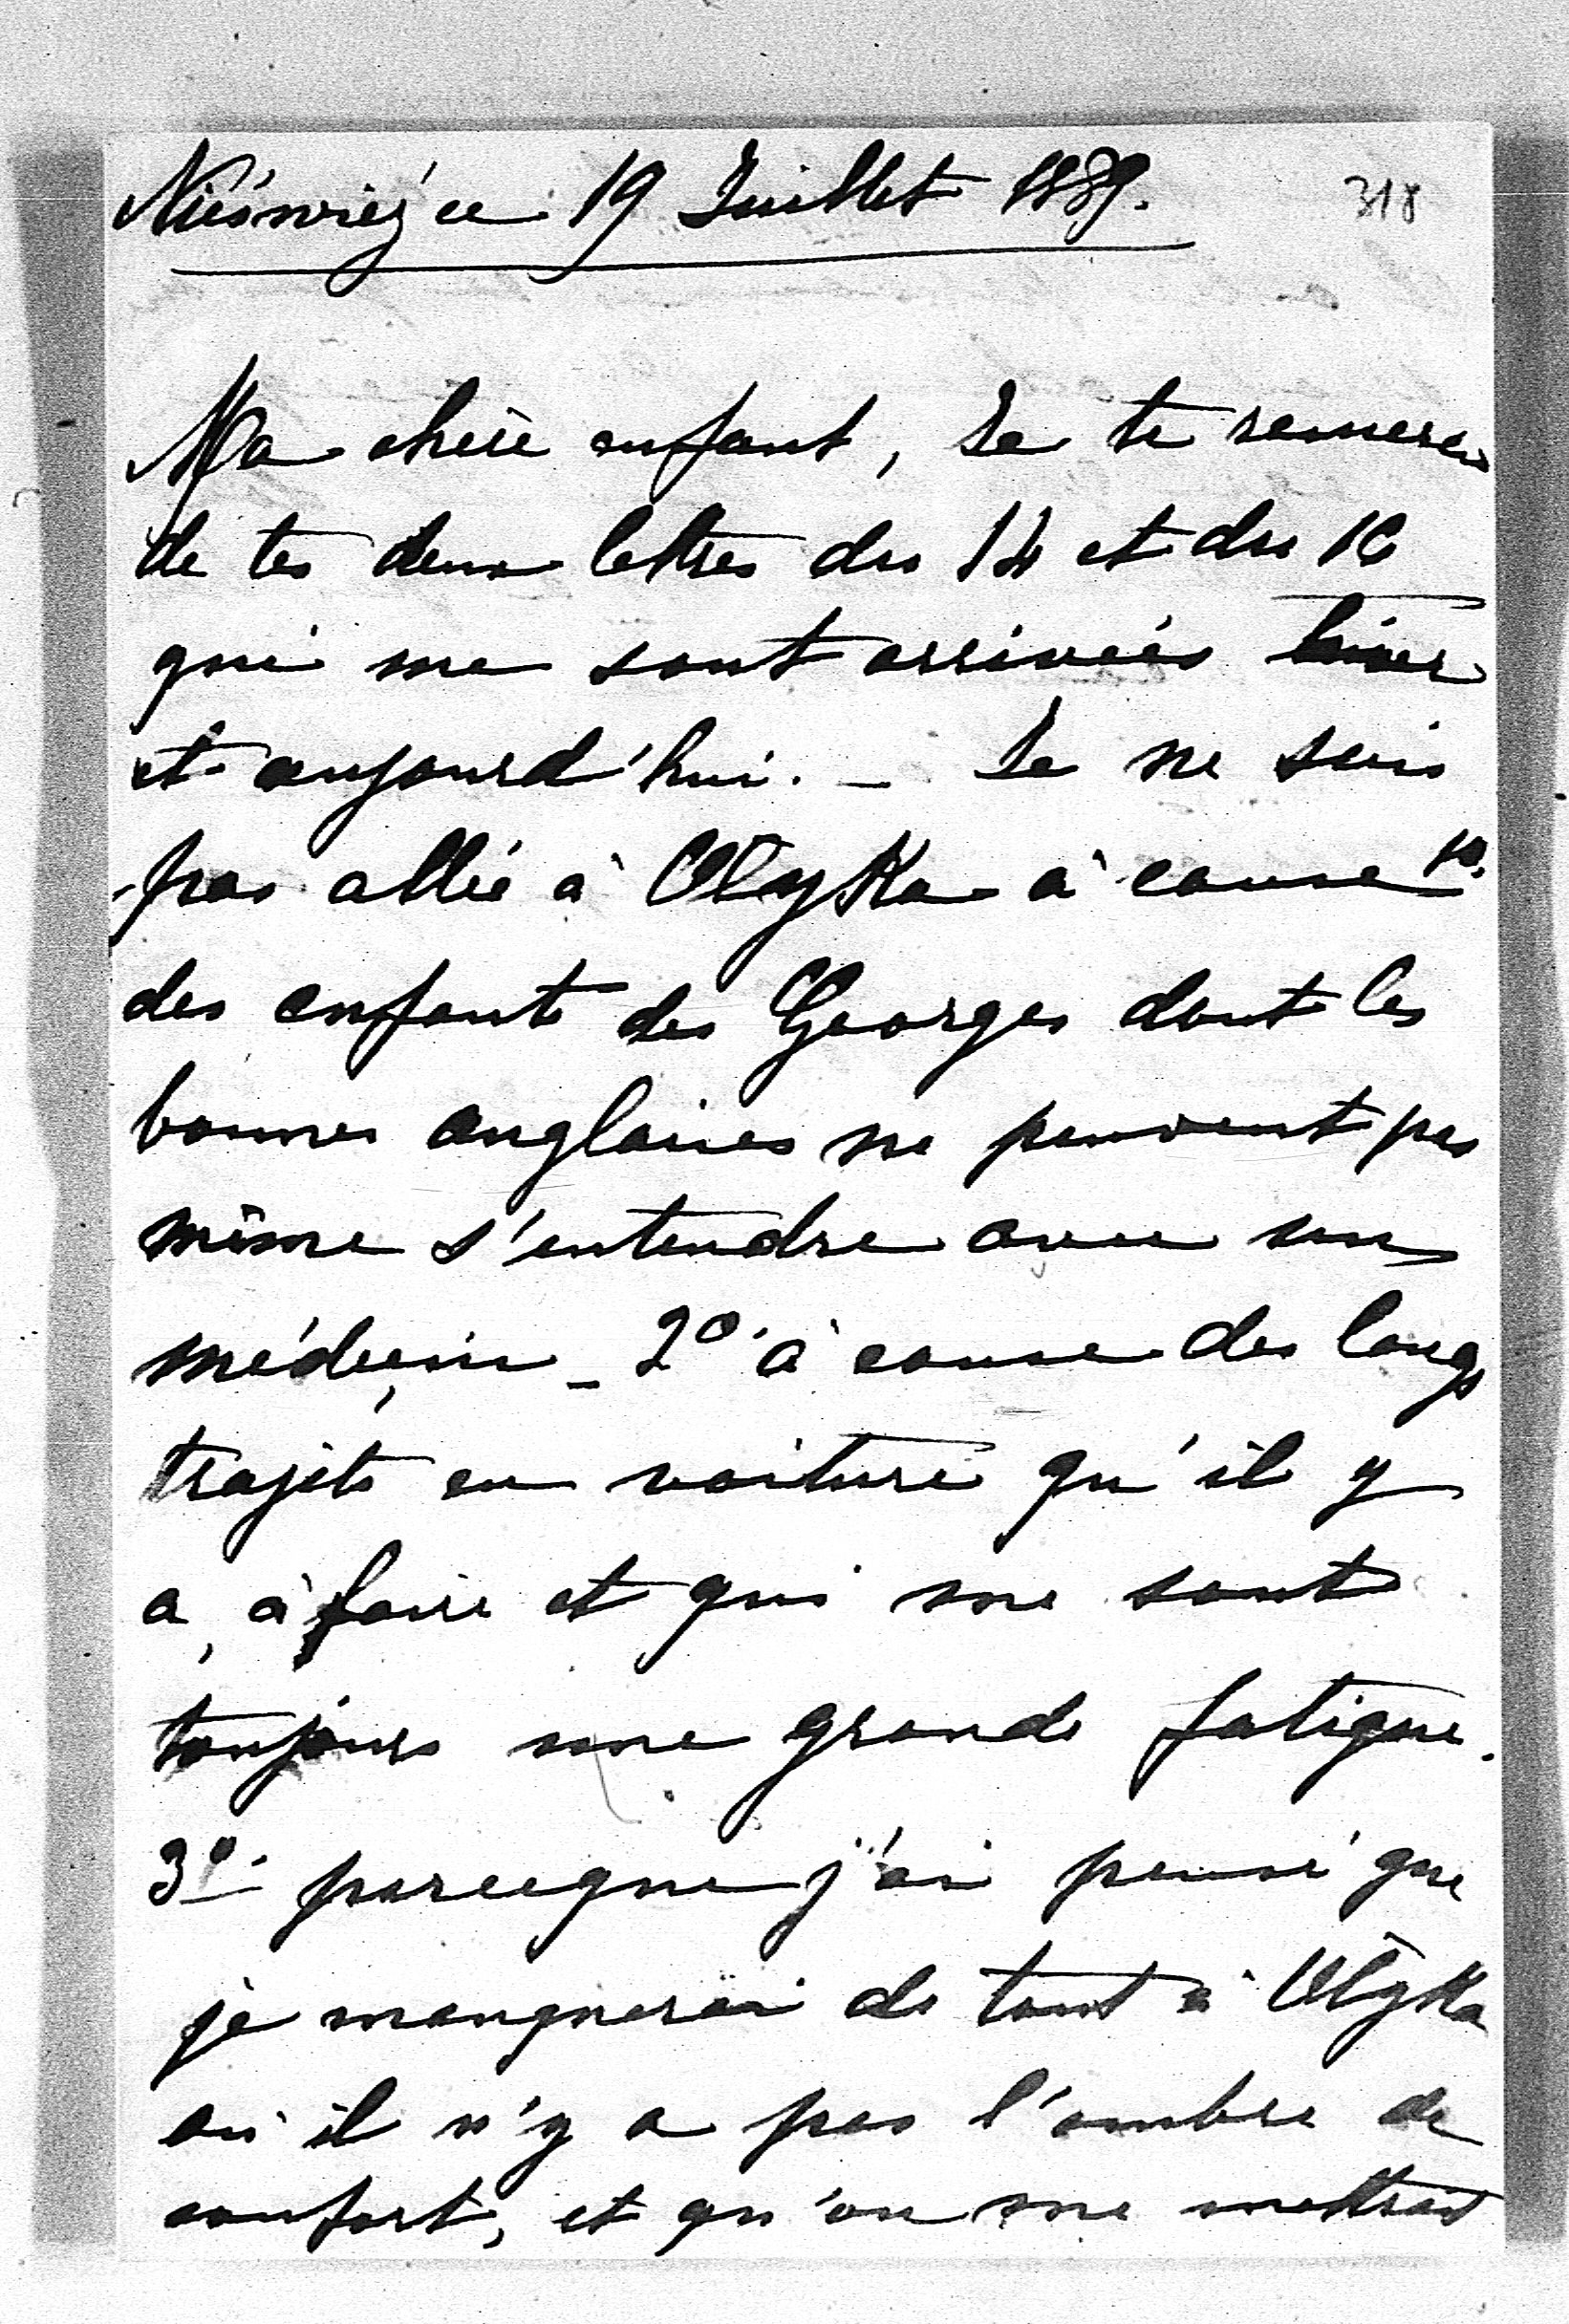 Nieśwież ce 19 Juillet 1889.
318
Ma chère enfant, Je te remercie
de tes deux lettres du 14 et du 16
qui me sont arrivées hier
et aujourd'hui. _ Je ne suis
pas allée à Olyka à cause 1º.
des enfants des Georges dont les
bonnes anglaises ne peuvent pas
même s'entendre avec un
médecin _ 2º à cause des longs
trajets en voiture qu'il y
a, à faire et qui me sont
toujours une grande fatigue.
3º parceque j'ai pensé que
je manquerai de tout à Olyka
où il n'y a pas l'ombre de
confort, et qu'on me mettrait